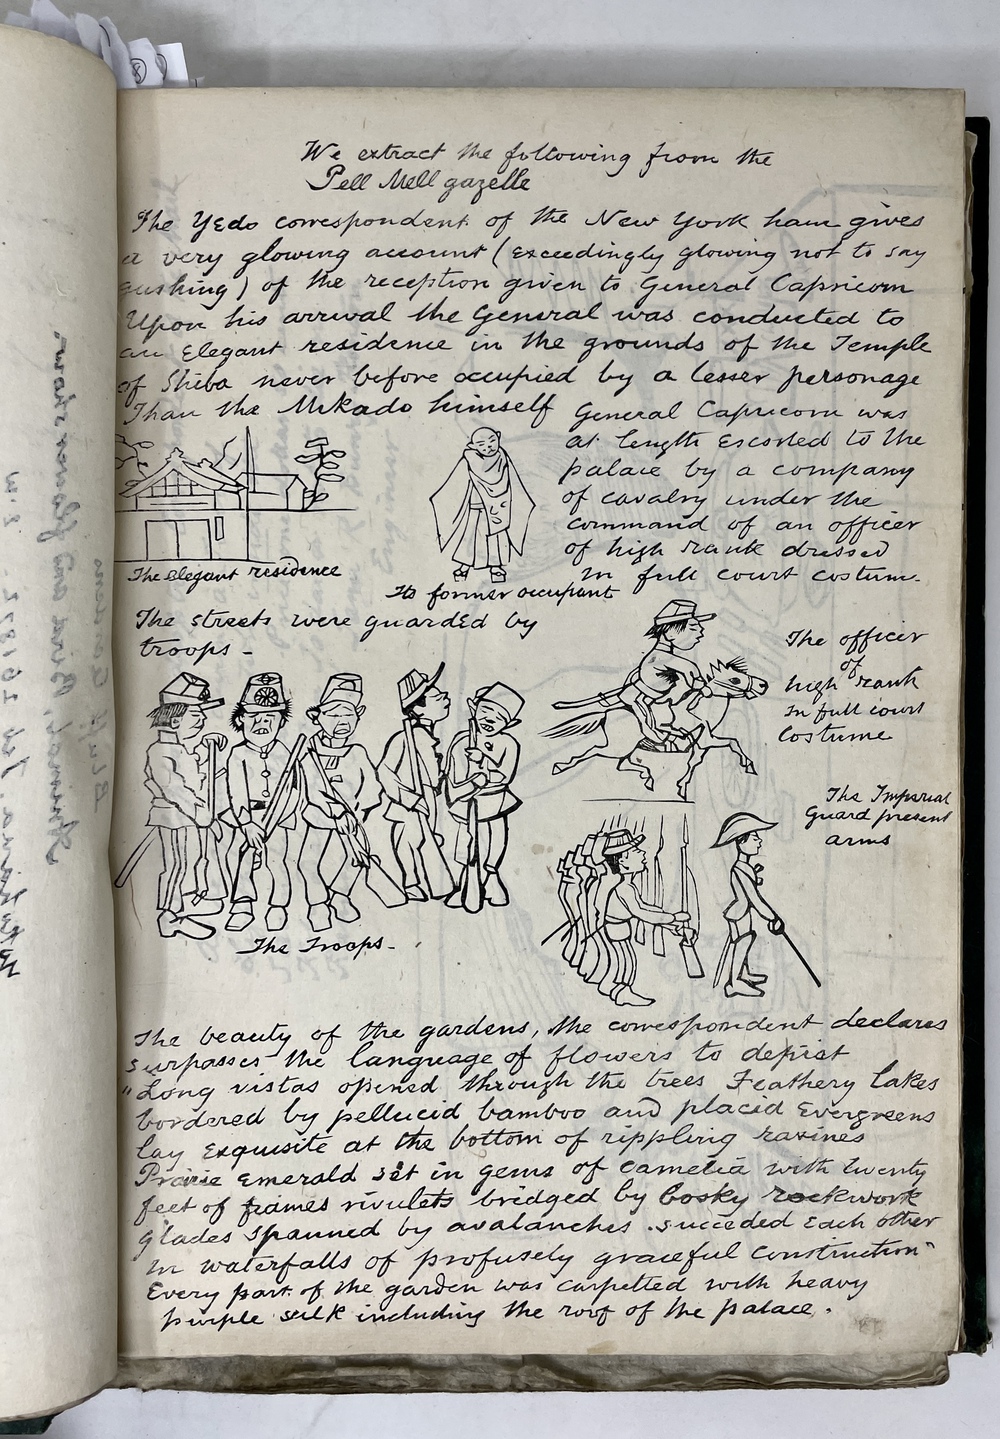 We extract the following from the
Pell Mell gazelle
The Yedo correspondent of the New York ham gives
a very glowing account (Exceedingly glowing not to say
gushing) of the reception given to General Capricorn
Upon his arrival the General was conducted to
an Elegant residence in the grounds of the Temple
of Shiba never before occupied by a lesser personage
Than the Mikado himself
General Capricorn was
at length Escorted to the
palace by a company
of cavalry under the
command of an officer
of high rank dressed
in full court costum.
The Elegant residence
Its former occupant
The streets were guarded by
troops -
The officer
of
high rank
In full court
Costume
The Imperial
Guard present
arms
The Troops -
The beauty of the gardens, the correspondent declares
surpasses the language of flowers to depict
"Long vistas opened through the trees Feathery lakes
bordered by pellucid bamboo and placid Evergreens
lay Exquisite at the bottom of rippling ravines
Prairie Emerald set in gems of Camelia with twenty
feet of frames rivulets bridged by bosky rockwork
glades spanned by avalanches . succeded Each other
in waterfalls of profusely graceful construction"
Every part of the garden was carpetted with heavy
purple silk including the roof of the palace .